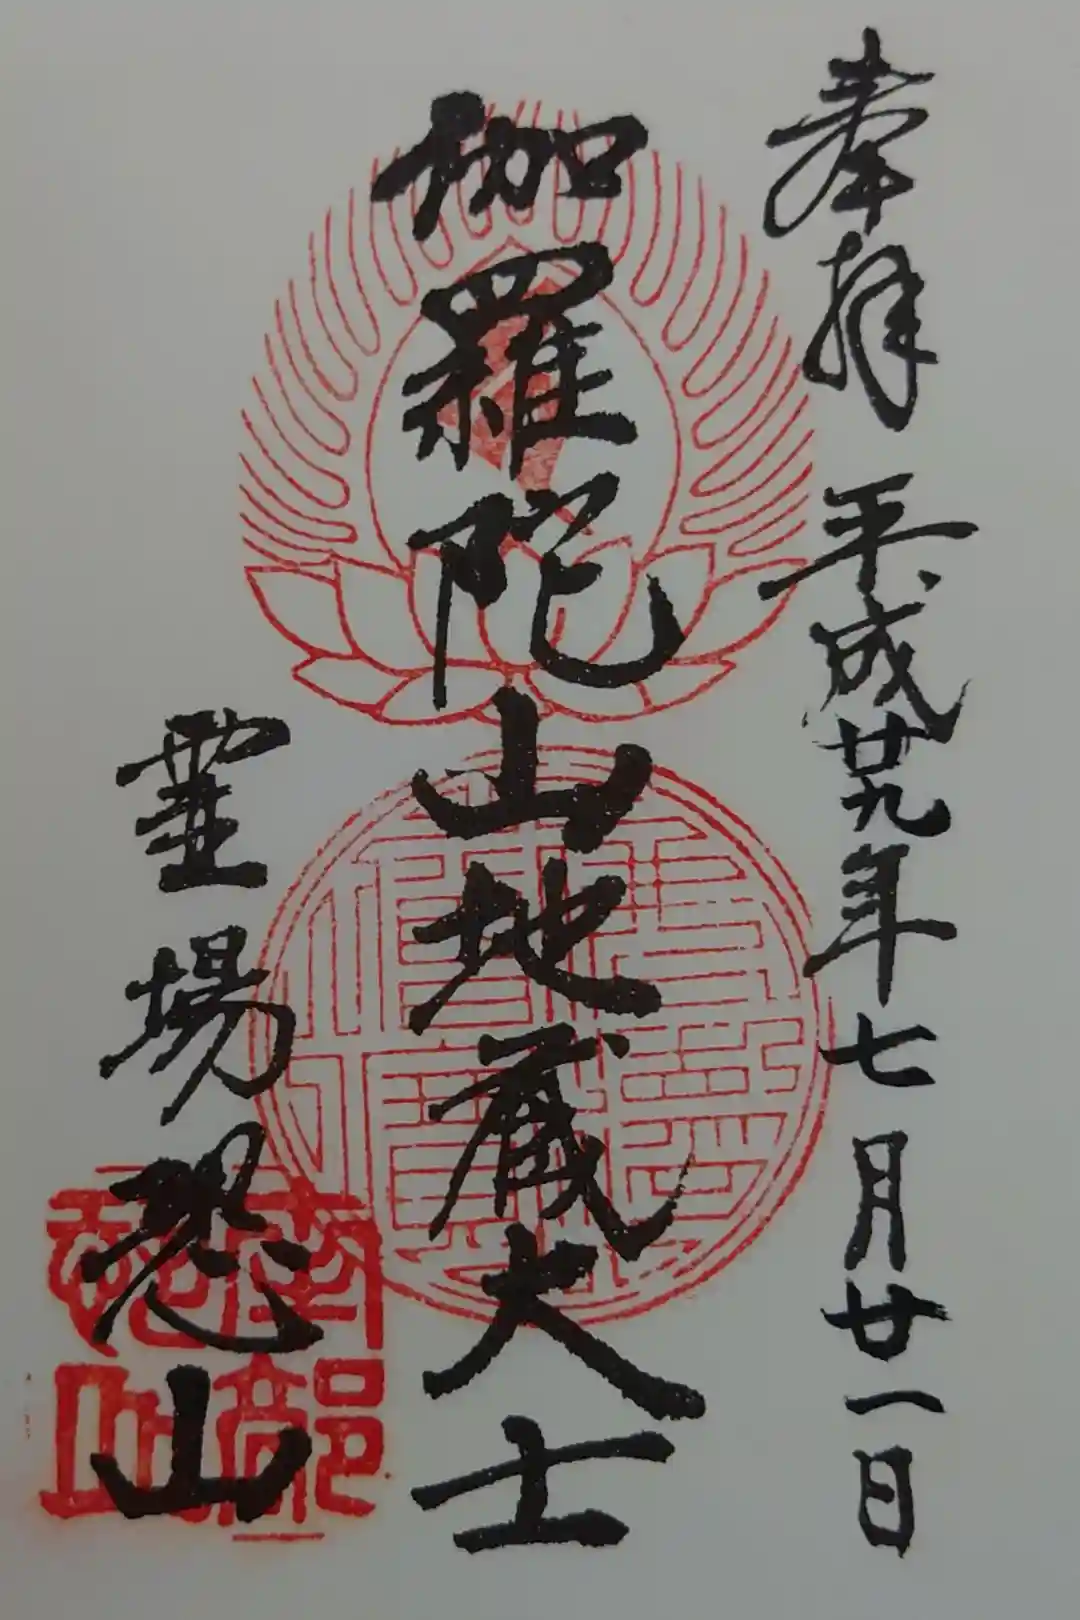 奉拝 平成廿九年七月廿一日
伽羅陀山地蔵大士
霊場恐山
南部
恐山